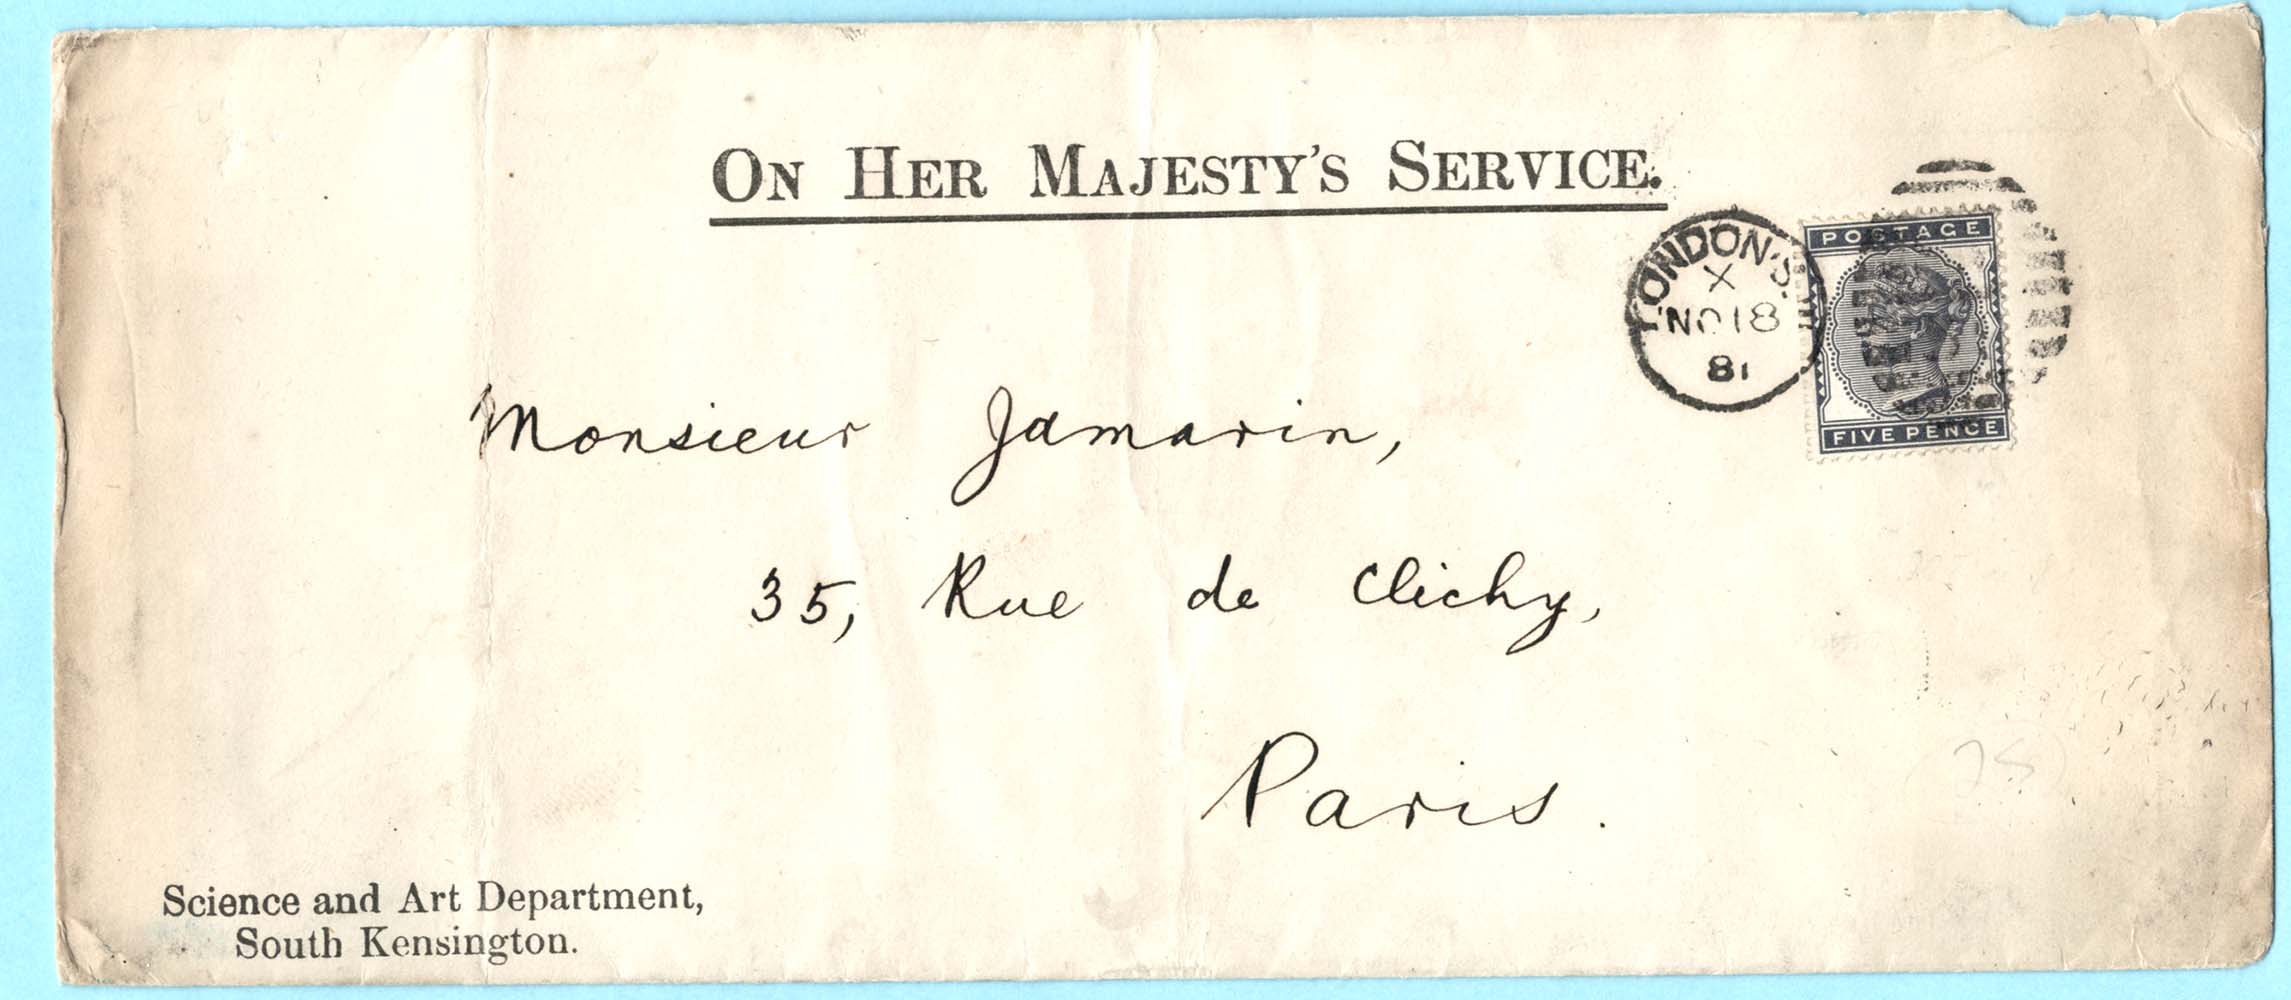 ON HER MAJESTY'S SERVICE.
LONDON. S.W
X
NO 18
81
POSTAGE
FIVE PENCE
Monsieur Jamarin,
35, Rue de Clichy,
Paris.
Science and Art Department,
South Kensington.